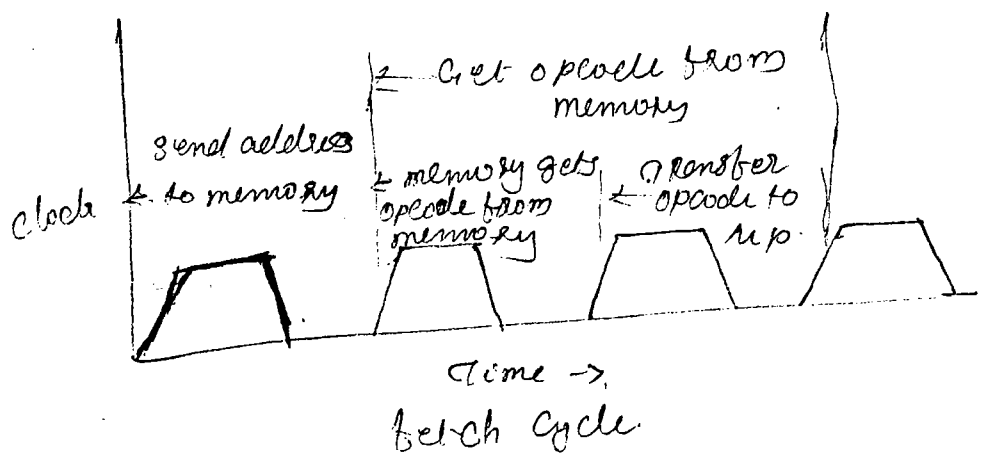 Get opcode from
memory
send address
to memory
memory gets
opcode from
memory
Transfer
opcode to
μp.
Clock
Time →
fetch Cycle.